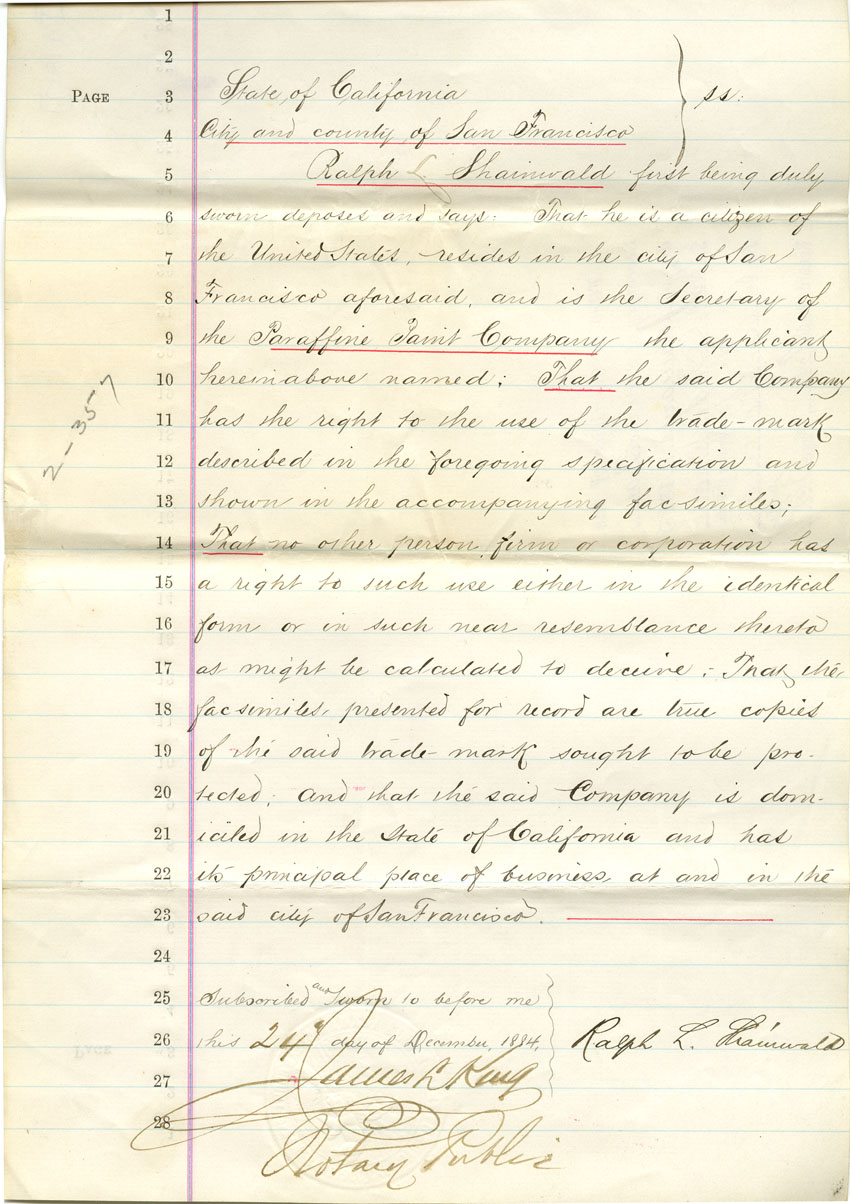 1
2
PAGE 3 State of California } ss:
4 City and county of San Francisco
5 Ralph L. Shainwald first being duly
6 sworn deposes and says: That he is a citizen of
7 the United States, resides in the city of San
8 Francisco aforesaid, and is the Secretary of
9 the Paraffine Paint Company the applicant
10 hereinabove named; That the said Company
11 has the right to the use of the trade-mark
12 described in the foregoing specification and
13 shown in the accompanying fac-similes;
14 That no other person, firm or corporation has
15 a right to such use either in the identical
16 form or in such near resemblance thereto
17 as might be calculated to deceive; That the
18 fac similes, presented for record are true copies
19 of the said trade-mark sought to be pro-
20 tected; and that the said Company is dom-
21 iciled in the State of California and has
22 its principal place of business, at and in the
23 said city of San Francisco.
24
25 Subscribed and Sworn to before me
26 this 24" day of December, 1884. Ralph L. Shainwald
27 James L. King
28
Notary Public
2-357